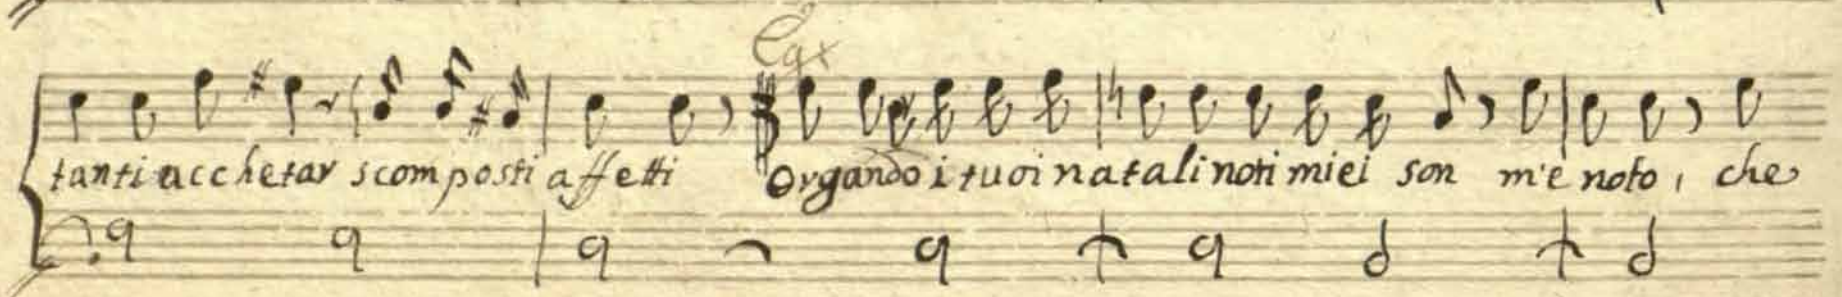 Egx
tanti acchetar scomposti affetti Orgando i tuoi natali noti miei son m'è noto, che